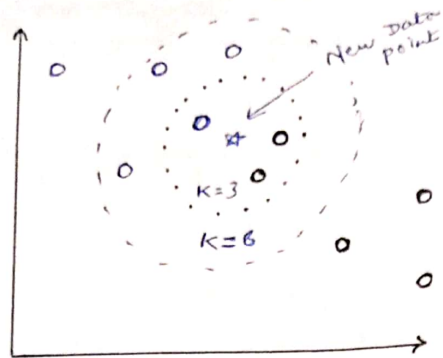 New Data
point
K=3
K=6